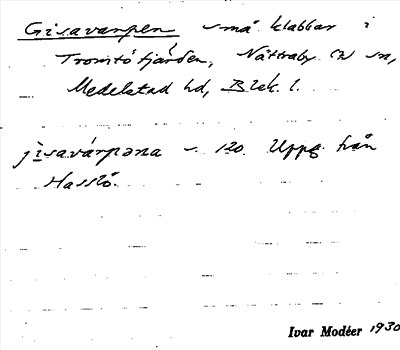 Gisavarpen små klabbar i
Tromtö fjärden, Nättraby sn,
Medelstad hd, Blek. l.
jisavárpəna – 120. Uppg. från
Hasslö.
Ivar Modéer 1930